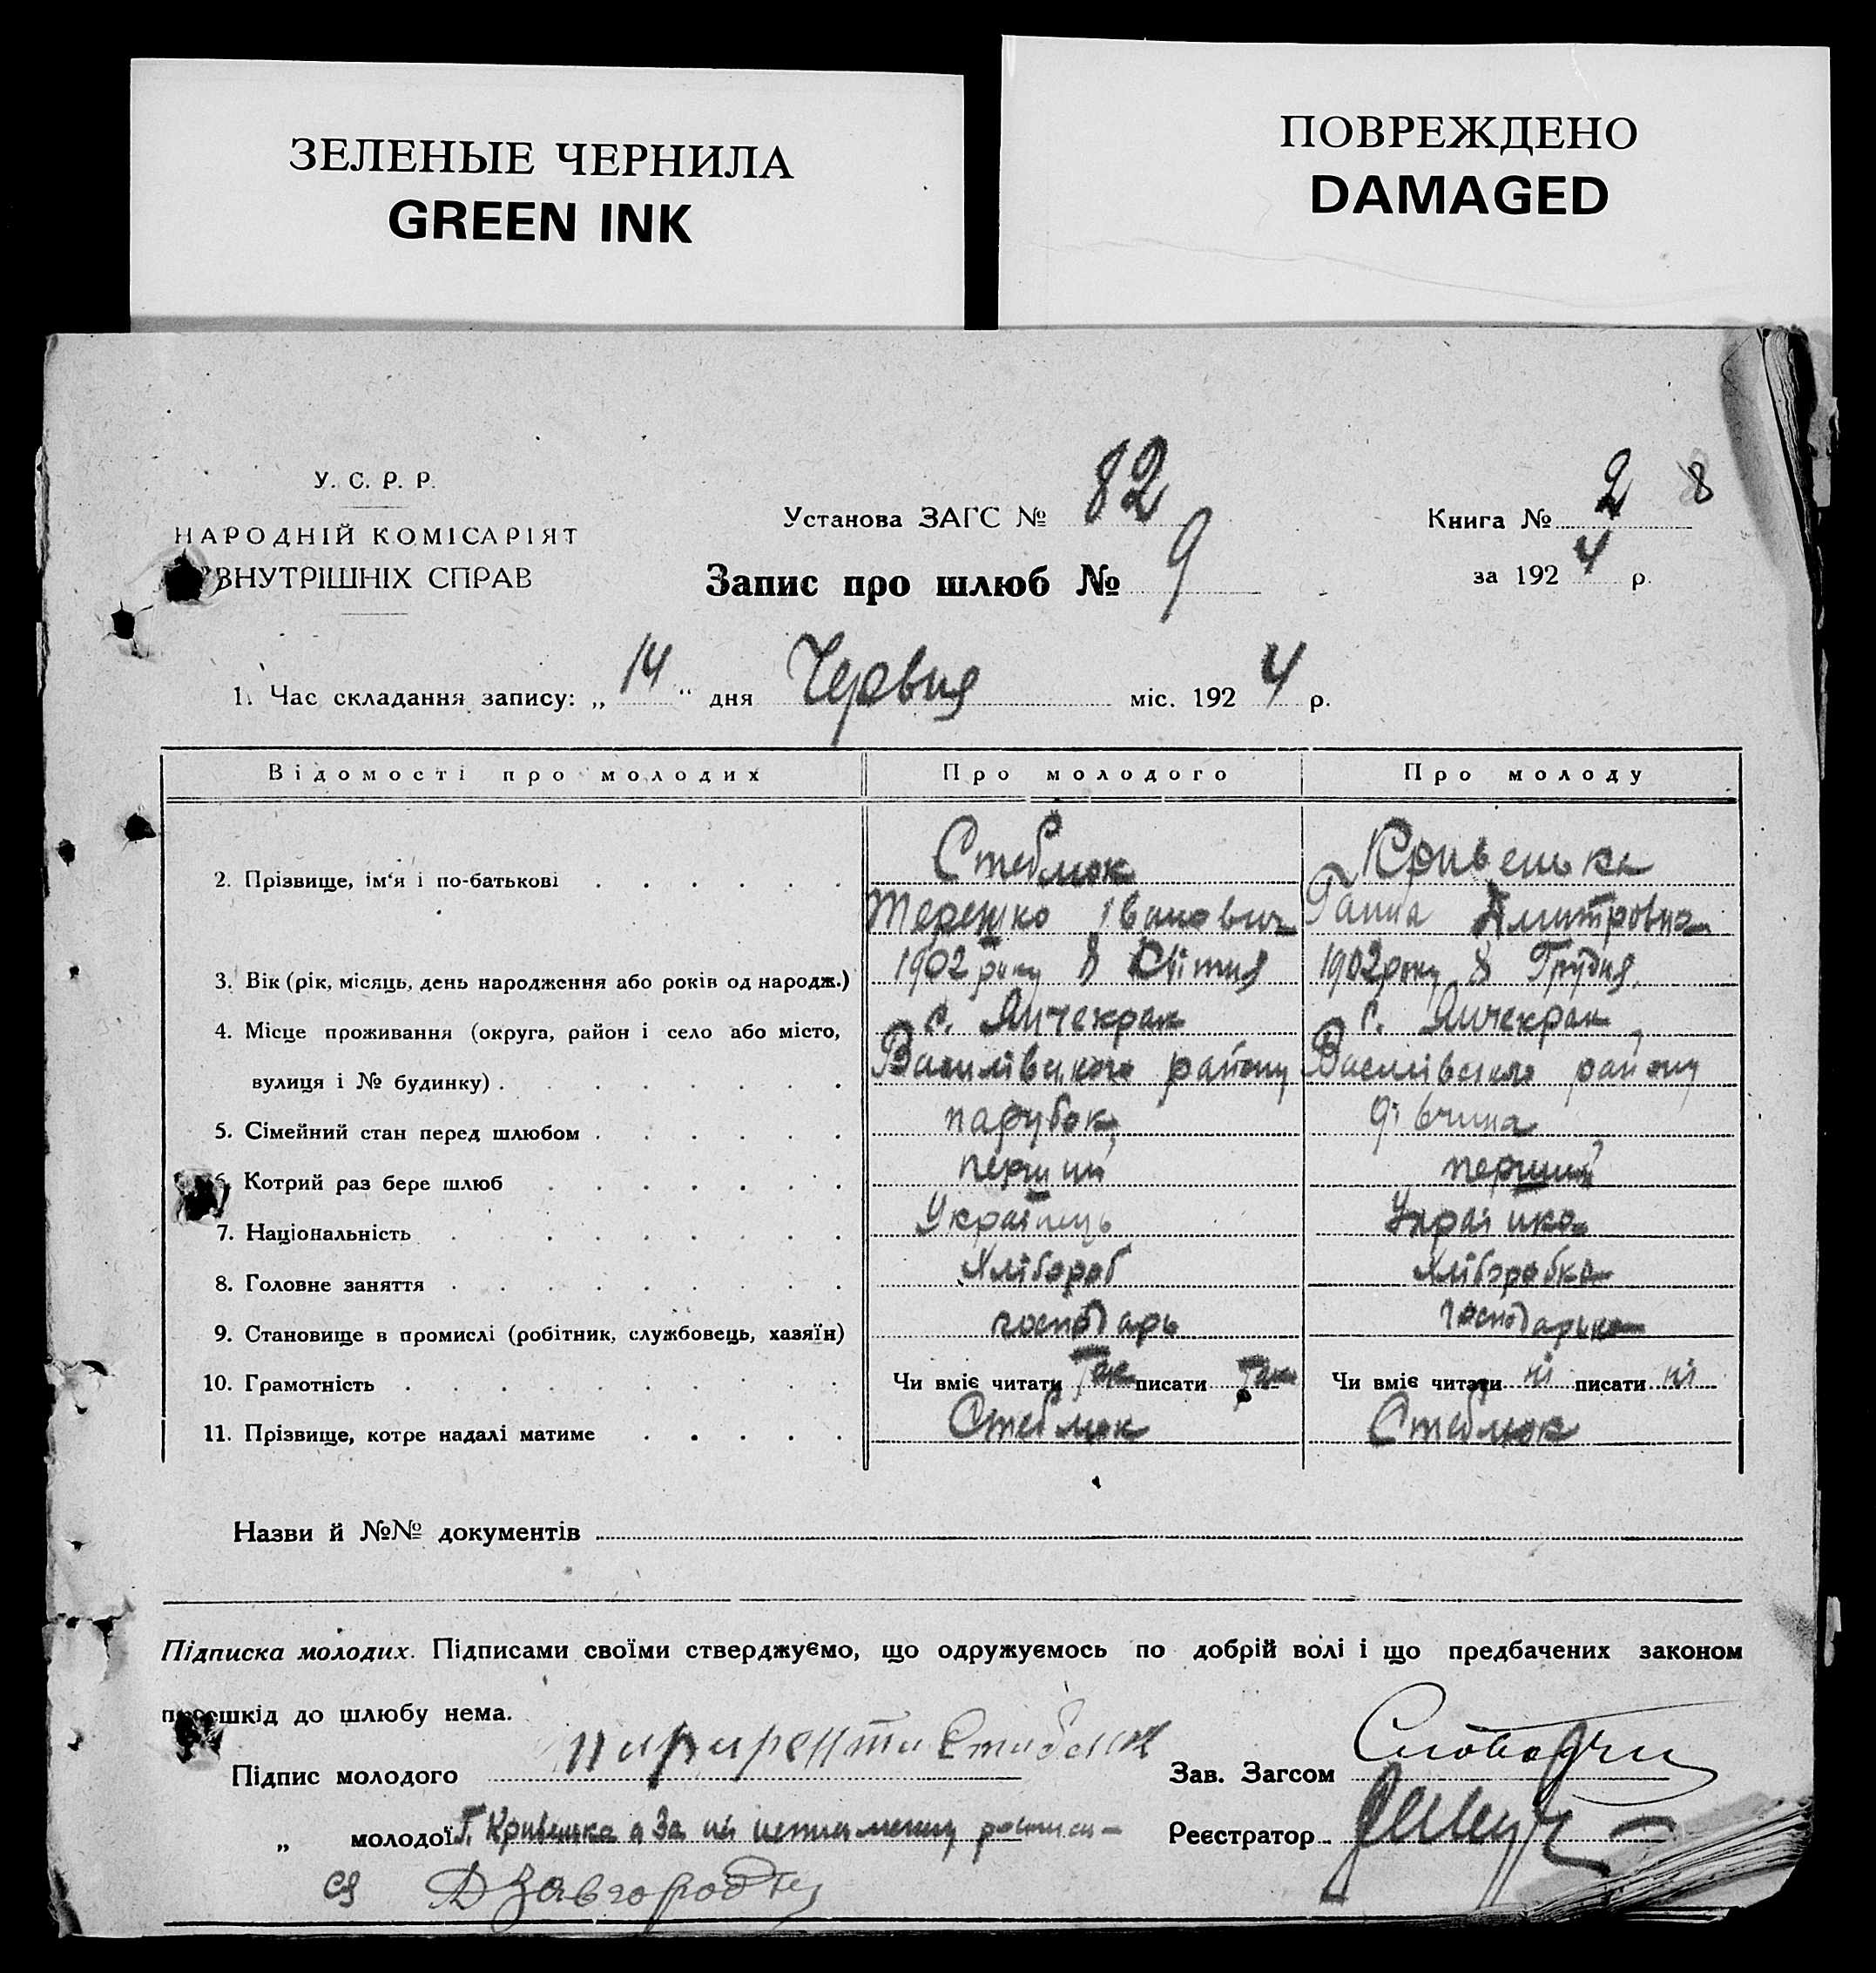 ЗЕЛЕНЫЕ ЧЕРНИЛА
GREEN INK
ПОВРЕЖДЕНО
DAMAGED
У. С. Р. Р.
НАРОДНІЙ КОМІСАРІЯТ
ВНУТРІШНІХ СПРАВ
Установа ЗАГС № 82
Запис про шлюб № 9
Книга № 2 8
за 1924 р.
1. Час складання запису: „14“ дня Червня міс. 1924 р.
Відомості про молодих Про молодого Про молоду
2. Прізвище, ім‘я і по-батькові Стеблюк Кривенька
Терешко Іванович Ганна Дмитровна
3. Вік (рік, місяць, день народження або років од народж.) 1902 року 8 Квітня 1902 року 8 Грудня
4. Місце проживання (округа, район і село або місто, с. Янчекрак с. Янчекрак
вулиця і № будинку) Василівського району Василівського району
5. Сімейний стан перед шлюбом парубок дівчина
6. Котрий раз бере шлюб перший перший
7. Національність Українець Українка
8. Головне заняття Хлібороб Хліборобка
9. Становище в промислі (робітник, службовець, хазяїн) господарь господарька
10. Грамотність Чи вміє читати Так писати Так Чи вміє читати ні писати ні
11. Прізвище, котре надалі матиме Стеблюк Стеблюк
Назви й №№ документів
Підписка молодих. Підписами своїми стверджуємо, що одружуємось по добрій волі і що предбачених законом
перешкід до шлюбу нема.
Підпис молодого
Зав. Загсом
„ молодої Г. Кривенька а За
Реєстратор
ся Д Завгородній